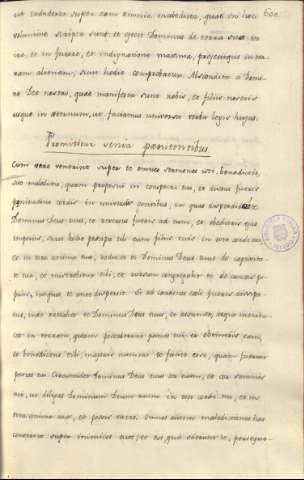 600
ut induceret super eam omnia maledicta, quae in hoc
volumine scripta sunt: et ejecit Dominus de terra sua in
ira, et in furore, et indignatione maxima, projecitque in ter-
ram alienam, sicut hodie comprobatur. Abscondita a Domi-
no Deo nostro, quae manifesta sunt nobis, et filiis nostris
usque in aeternum, ut faciamus universa verba legis hujus.
Promittitur venia poenitentibus.
Cum ergo venerint super te omnes sermones isti, benedictio,
sive maledictio, quam proposui in conspectu tuo, et ductus fueris
poenitudine cordis tui in universis gentibus, in quas disperserit te
Dominus Deus tuus, et reversus fueris ad eum, et obedieris ejus
imperiis, sicut hodie praecipio tibi cum filiis tuis, in toto corde tuo
et in tota anima tua, reducet te Dominus Deus tuus de captivita-
te tua, et miserebitur tui, et rursum congregabit te de cunctis po-
pulis, in quos te ante dispersit. Si ad cardines coeli fueris dissipa-
tus, inde retrahet te Dominus Deus tuus, et assumet, atque introdu-
cet in terram, quam possederunt patres tui et obtinebis eam,
et benedicens tibi, majoris numeri te faciet esse, quam fuerunt
patres tui. Circumcidet Dominus Deus tuus cor tuum, et cor seminis
tui, ut diligas Dominum Deum tuum in toto corde tuo, et in
tota anima tua, et possis vivere. Omnes autem maledictiones has
convertet super inimicos tuos, et eos qui oderunt te, persequn-